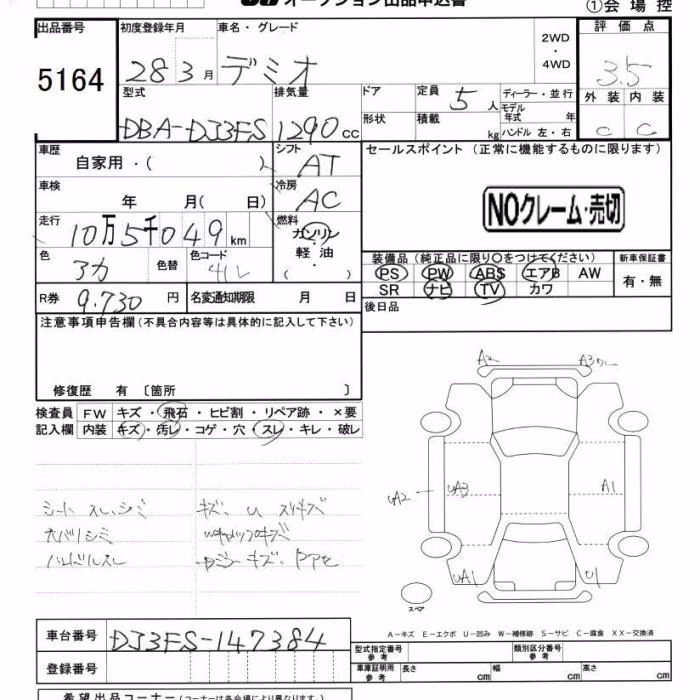 オークション出品申込書
①会場控
出品番号
5164
初度登録年月
28 3月
車名・グレード
デミオ
2WD
・
4WD
評価点
3.5
外装 内装
C C
型式
DBA-DJ3FS
排気量
1290 cc
ドア
形状
定員 5 人
積載 kg
ディーラー・並行
モデル年式 年
ハンドル 左・右
車歴
自家用・( )
シフト
AT
セールスポイント (正常に機能するものに限ります)
NOクレーム・売切
車検
年 月(日)
冷房
AC
走行
10万5千049 km
燃料
ガソリン
軽油
( )
色
アカ
色替
色コード
41V
装備品 (純正品に限り○をつけてください)
PS PW ABS エアB AW
SR ナビ TV カワ
新車保証書
有・無
R券 9.730 円
名変通知期限 月 日
後日品
注意事項申告欄 (不具合内容等は具体的に記入して下さい)
修復歴 有 〔箇所 〕
検査員記入欄
FW キズ・飛石・ヒビ割・リペア跡・×要
内装 キズ・汚レ・コゲ・穴・スレ・キレ・破レ
シート スレ、シミ
キズ、U スリキズ
天バリシミ
ハンドルスレ
A2
A3
UA2
UA3
A1
UA1
U1
スペア
A−キズ E−エクボ U−凹み W−補修跡 S−サビ C−腐食 XX−交換済
車台番号 DJ3FS-147384
登録番号
型式指定番号 参考
類別区分番号 参考
車庫証明用 参考
長さ cm 幅 cm 高さ cm
希望出品コーナー (コーナーは各会場により異なります)